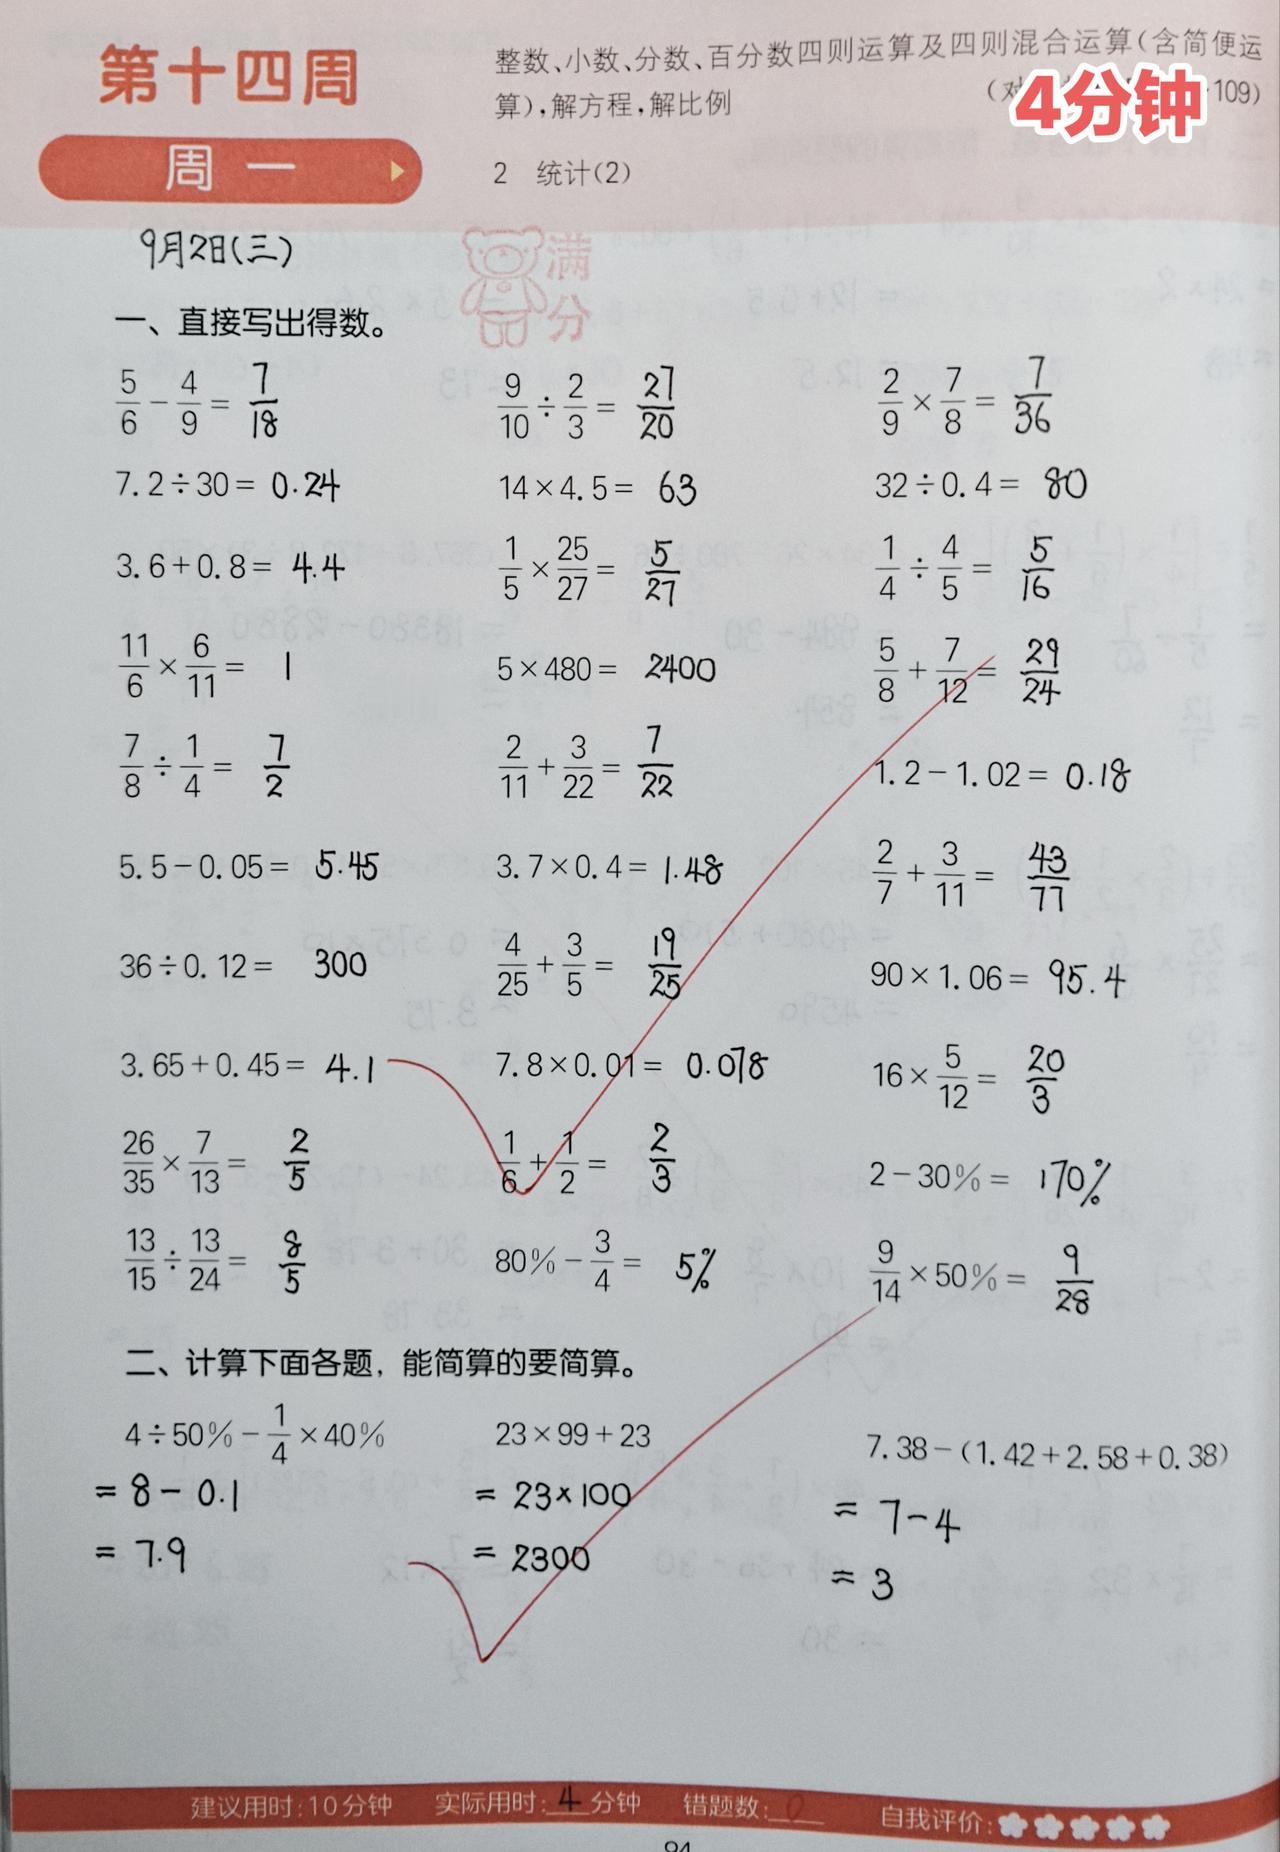 第十四周
整数、小数、分数、百分数四则运算及四则混合运算(含简便运
算),解方程,解比例
4分钟
·109)
周一
2 统计(2)
9月2日(三)
满分
一、直接写出得数。
5/6 - 4/9 = 7/18 9/10 ÷ 2/3 = 27/20 2/9 × 7/8 = 7/36
7.2÷30= 0.24 14×4.5= 63 32÷0.4= 80
3.6+0.8= 4.4 1/5 × 25/27 = 5/27 1/4 ÷ 4/5 = 5/16
11/6 × 6/11 = 1 5×480= 2400 5/8 + 7/12 = 29/24
7/8 ÷ 1/4 = 7/2 2/11 + 3/22 = 7/22 1.2-1.02= 0.18
5.5-0.05= 5.45 3.7×0.4= 1.48 2/7 + 3/11 = 43/77
36÷0.12= 300 4/25 + 3/5 = 19/25 90×1.06= 95.4
3.65+0.45= 4.1 7.8×0.01= 0.078 16× 5/12 = 20/3
26/35 × 7/13 = 2/5 1/6 + 1/2 = 2/3 2-30%= 170%
13/15 ÷ 13/24 = 8/5 80%- 3/4 = 5% 9/14 ×50%= 9/28
二、计算下面各题,能简算的要简算。
4÷50%- 1/4 ×40% 23×99+23 7.38-(1.42+2.58+0.38)
= 8-0.1 = 23×100 = 7-4
= 7.9 = 2300 = 3
建议用时:10分钟 实际用时:4分钟 错题数:0 自我评价: